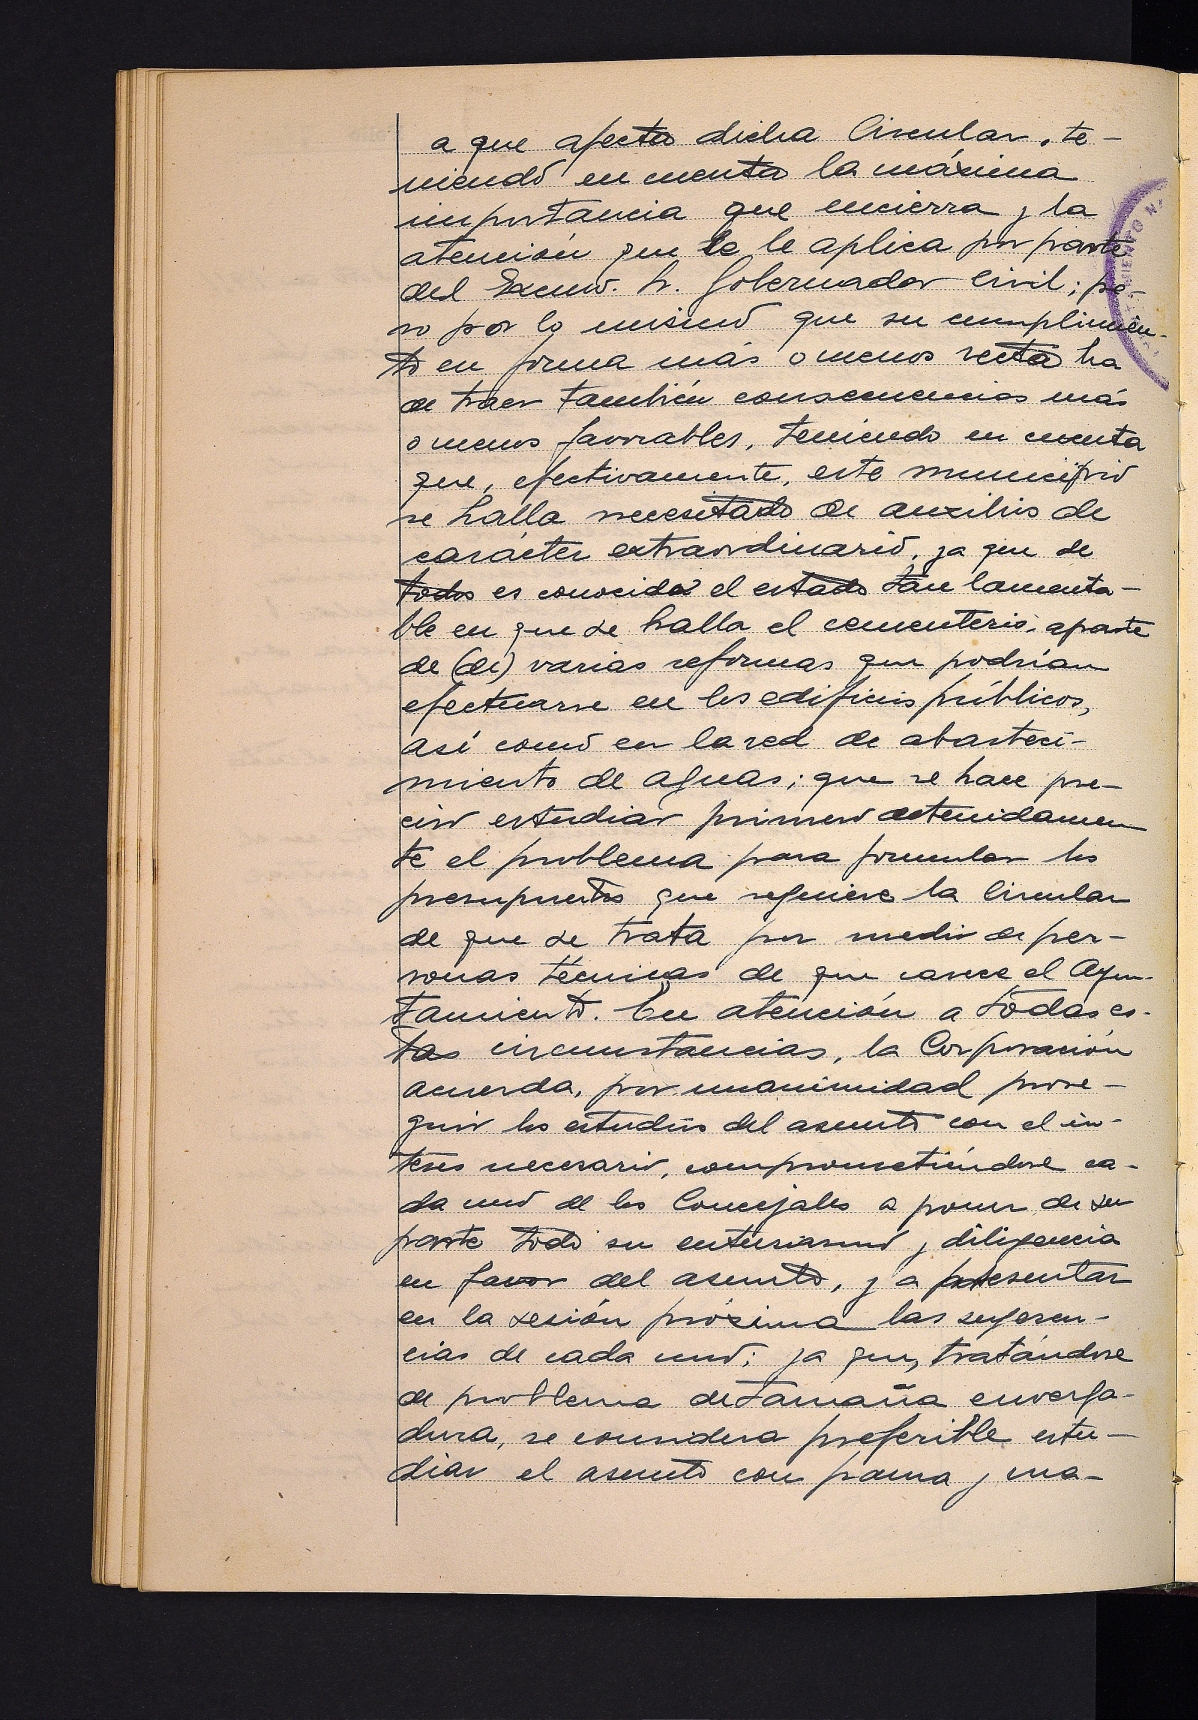 a que afecta dicha Circular, te-
niendo en cuenta la máxima
importancia que encierra y la
atención que se le aplica por parte
del Excmo. Sr. Gobernador Civil; pe-
ro por lo mismo que su cumplimien-
to en forma más o menos recta ha
de traer también consecuencias más
o menos favorables, teniendo en cuenta
que, efectivamente, este municipio
se halla necesitado de auxilios de
carácter extraordinario, ya que de
todos es conocido el estado tan lamenta-
ble en que se halla el cementerio, aparte
de (de) varias reformas que podrían
efectuarse en los edificios públicos,
así como en la red de abasteci-
miento de aguas; que se hace pre-
ciso estudiar primero detenidamen
te el problema para formular los
presupuestos que requiere la Circular
de que se trata por medio de per-
sonas técnicas de que carece el Ayun-
tamiento. En atención a todas es-
tas circunstancias, la Corporación
acuerda, por unanimidad prose-
guir los estudios del asunto con el in-
terés necesario, comprometiéndose ca-
da uno de los Concejales a poner de su
parte todo su entusiasmo y diligencia
en favor del asunto, y a presentar
en la sesión próxima las sugeren-
cias de cada uno; ya que, tratándose
de problema de tamaña enverga-
dura, se considera preferible estu-
diar el asunto con pausa y ma-